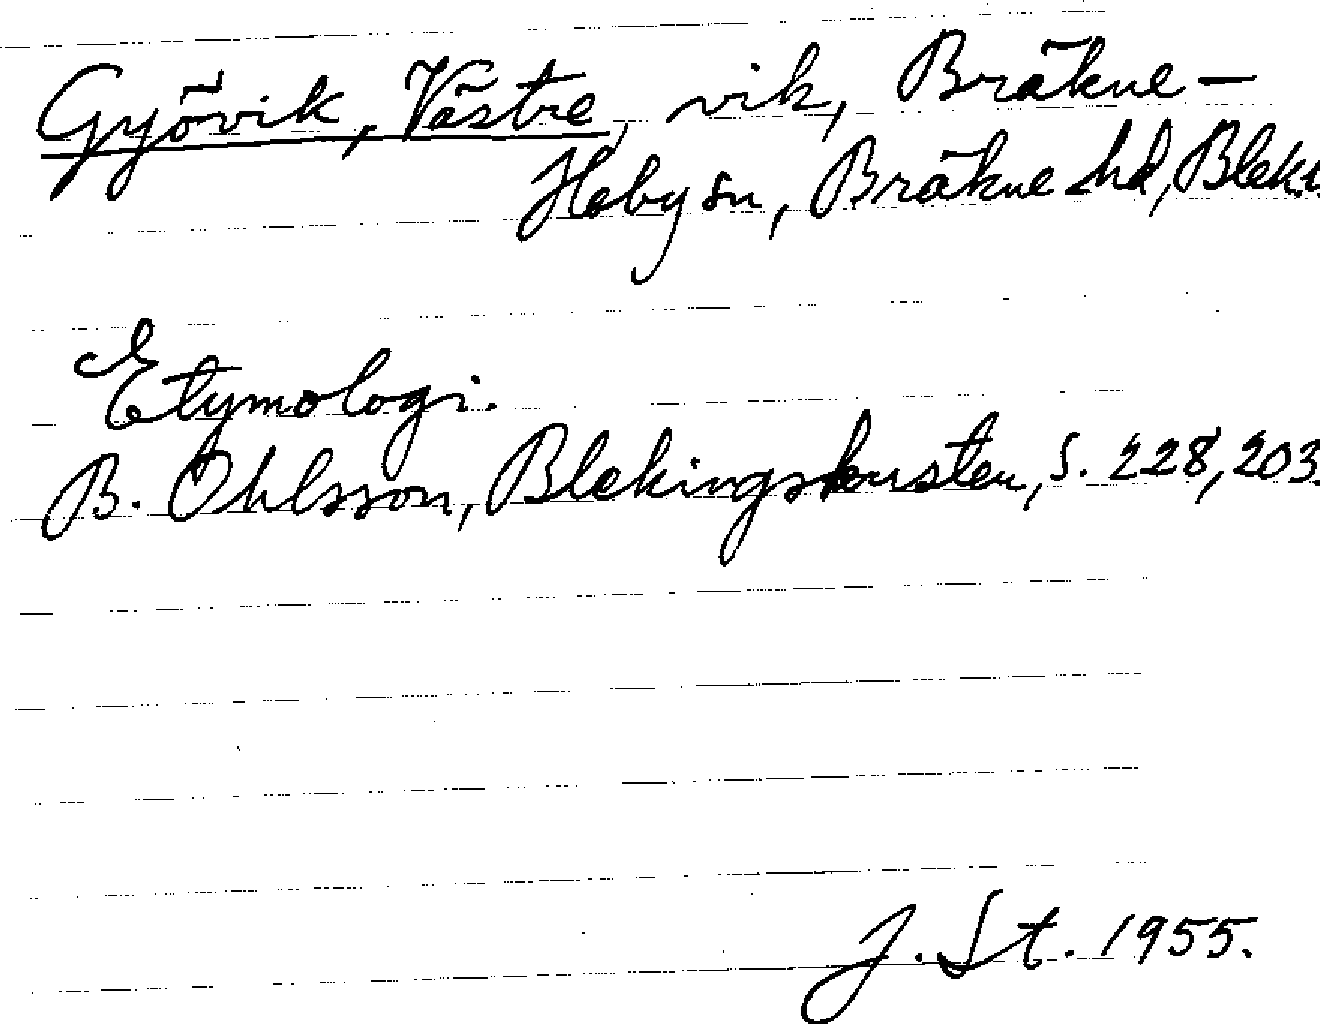 Gyövik, Västre, vik, Bräkne-
Hoby sn, Bräkne hd, Blek.
Etymologi.
B. Ohlsson, Blekingskusten, s. 228, 203.
J. St. 1955.